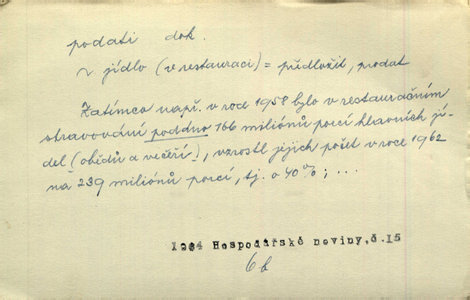 podati dok.
~ jídlo (v restauraci) = předložit, prodat
Zatímco např. v roce 1958 bylo v restauračním
stravování podáno 166 miliónů porcí hlavních jí-
del (obědů a večeří), vzrostl jejich počet v roce 1962
na 239 miliónů porcí, tj. o 40%; ...
1964 Hospodářské noviny, č.15
6b